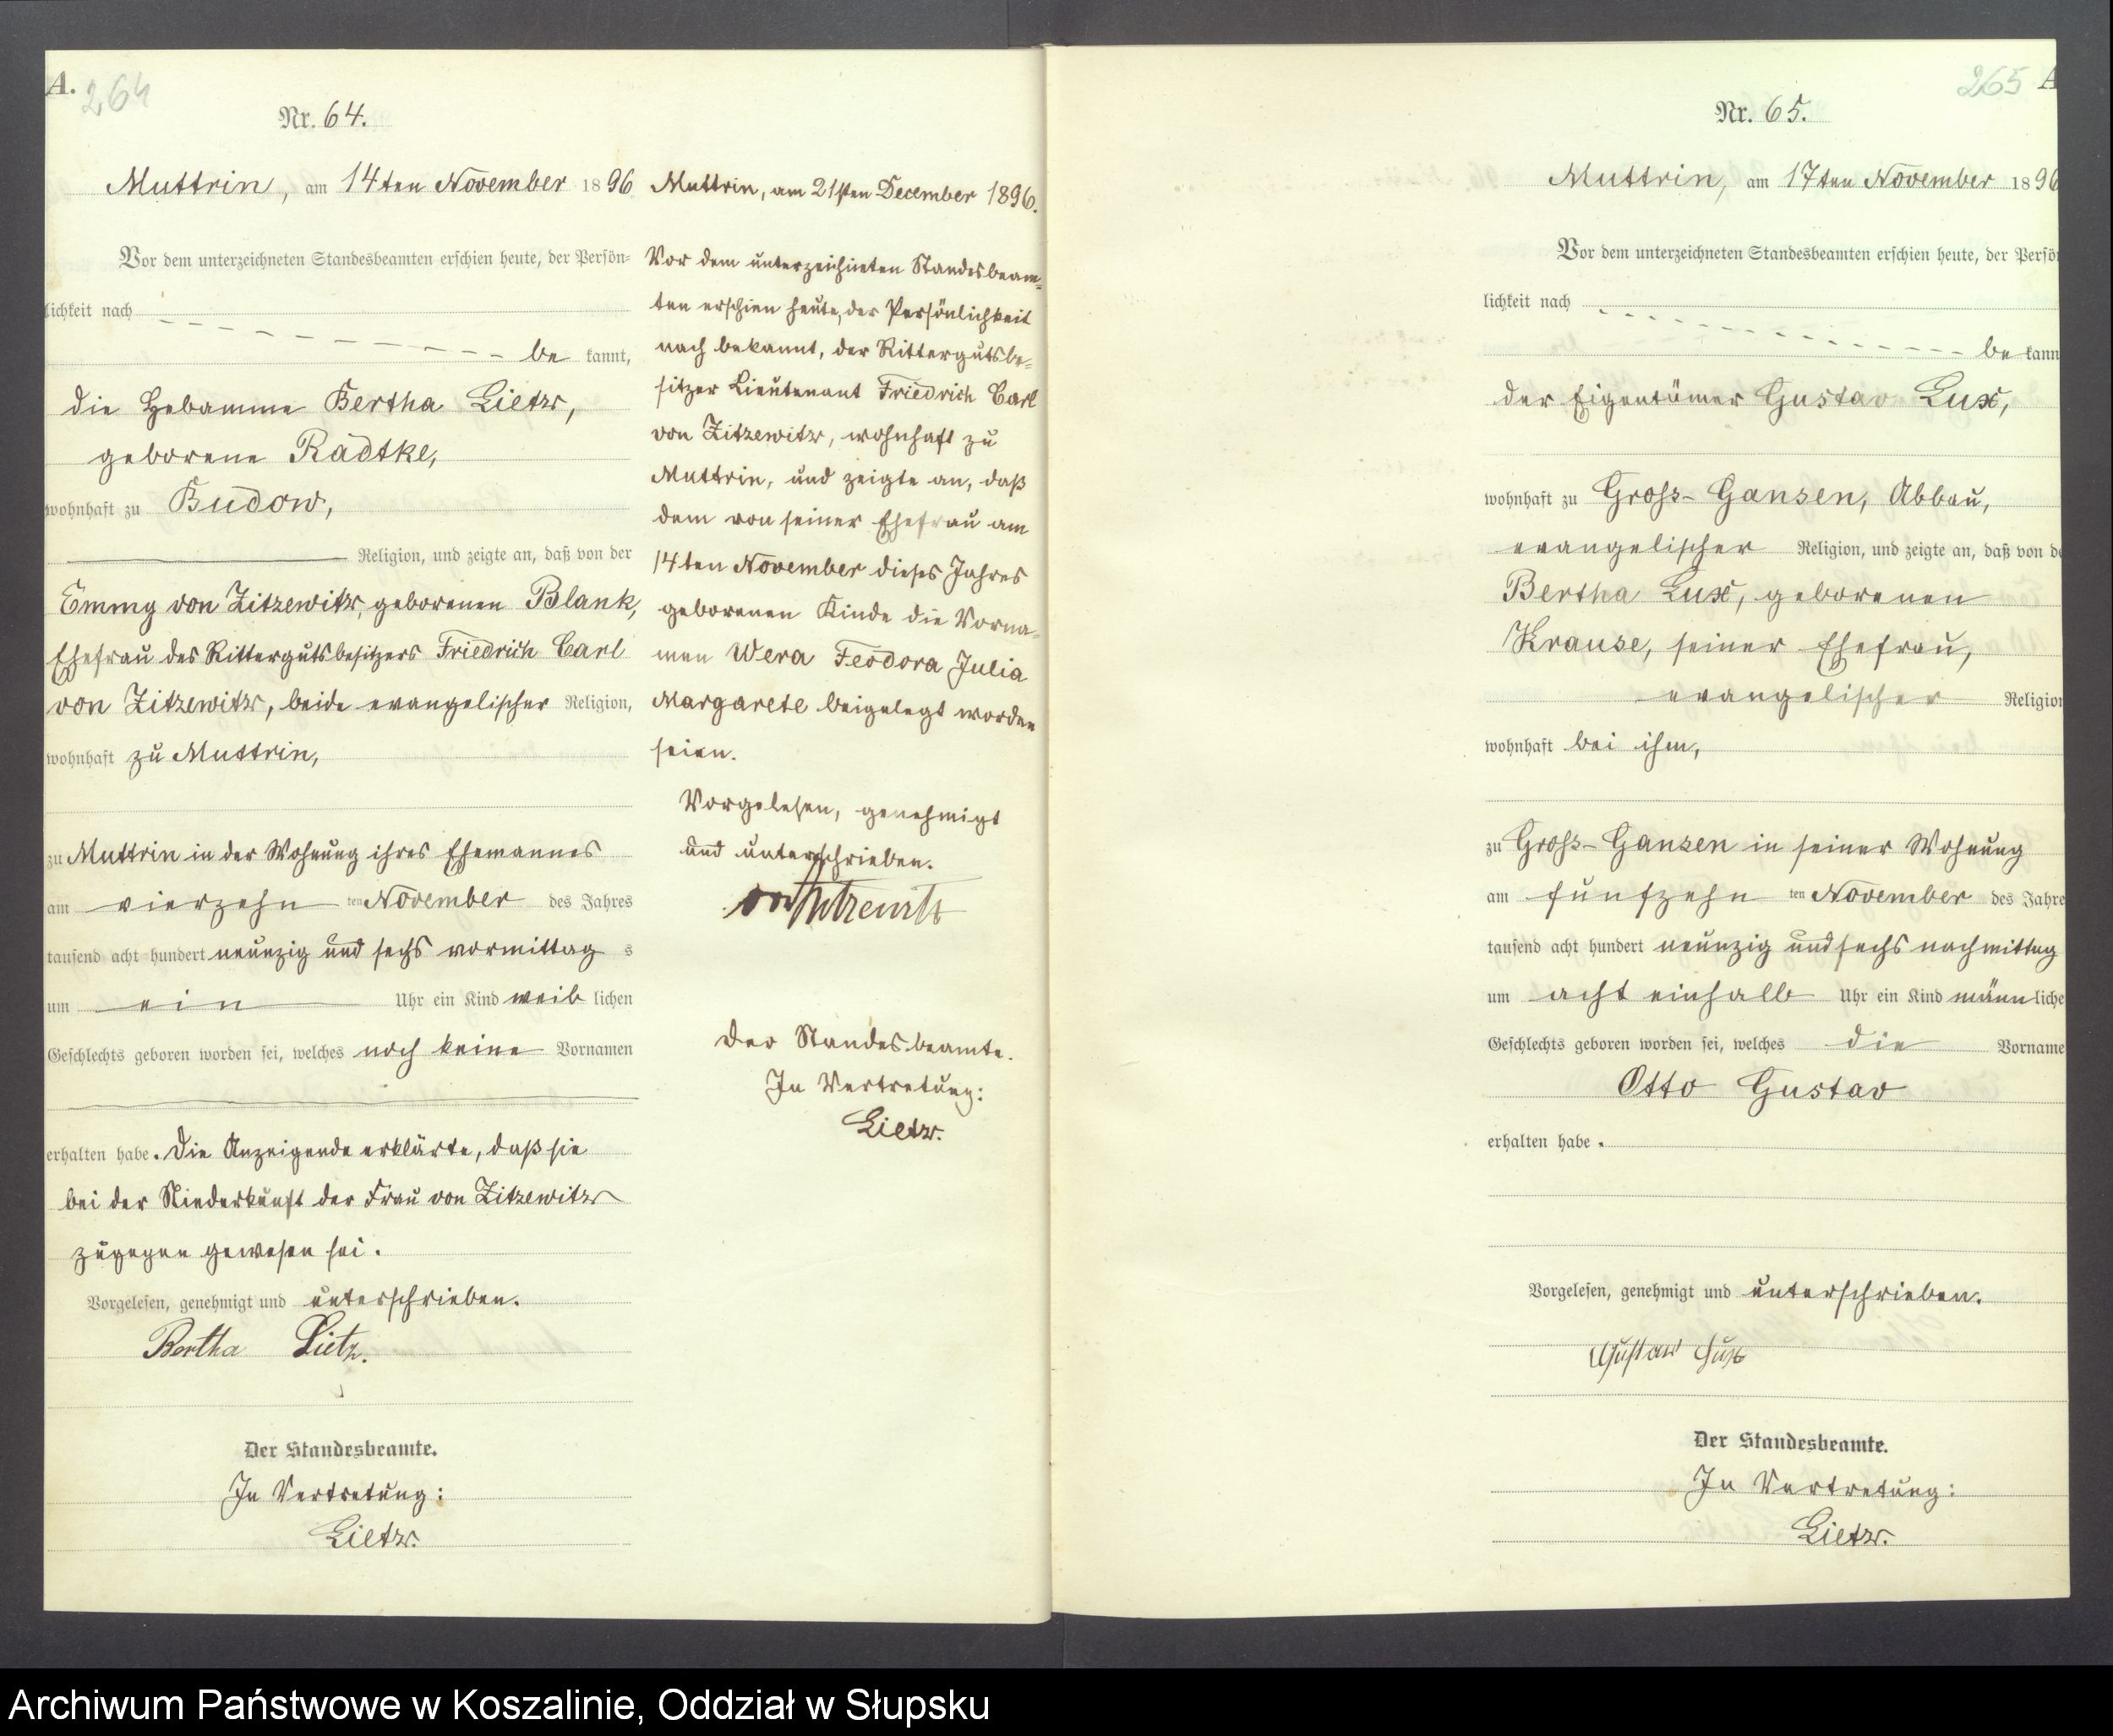 A.
264
Nr. 64.
Muttrin, am 14ten November 1896
Vor dem unterzeichneten Standesbeamten erschien heute, der Persön-
lichkeit nach
be kannt,
die Hebamme Bertha Lietz,
geborene Radtke,
wohnhaft zu Budow,
Religion, und zeigte an, daß von der
Emmy von Zitzewitz, geborenen Blank,
Ehefrau des Rittergutsbesitzers Friedrich Carl
von Zitzewitz, beide evangelischer Religion,
wohnhaft zu Muttrin,
zu Muttrin in der Wohnung ihres Ehemannes
am vierzehn ten November des Jahres
tausend acht hundert neunzig und sechs vormittag s
um ein Uhr ein Kind weib lichen
Geschlechts geboren worden sei, welches noch keine Vornamen
erhalten habe. Die Anzeigende erklärte, daß sie
bei der Niederkunft der Frau von Zitzewitz
zugegen gewesen sei.
Vorgelesen, genehmigt und unterschrieben.
Bertha Lietz.
Der Standesbeamte.
In Vertretung:
Lietz.
Muttrin, am 21sten December 1896.
Vor dem unterzeichneten Standesbeam-
ten erschien heute, der Persönlichkeit
nach bekannt, der Rittergutsbe-
sitzer Lieutenant Friedrich Carl
von Zitzewitz, wohnhaft zu
Muttrin, und zeigte an, daß
dem von seiner Ehefrau am
14ten November dieses Jahres
geborenen Kinde die Vorna-
men Wera Feodora Julia
Margarete beigelegt worden
seien.
Vorgelesen, genehmigt
und unterschrieben.
von Zitzewitz
Der Standesbeamte.
In Vertretung:
Lietz.
265
A
Nr. 65.
Muttrin, am 17ten November 1896
Vor dem unterzeichneten Standesbeamten erschien heute, der Persön
lichkeit nach
be kann
der Eigentümer Gustav Lux,
wohnhaft zu Gross-Gansen, Abbau,
evangelischer Religion, und zeigte an, daß von de
Bertha Lux, geborenen
Krause, seiner Ehefrau,
evangelischer Religion
wohnhaft bei ihm,
zu Gross-Gansen in seiner Wohnung
am fünfzehn ten November des Jahre
tausend acht hundert neunzig und sechs nachmittag
um acht einhalb Uhr ein Kind männ liche
Geschlechts geboren worden sei, welches die Vorname
Otto Gustav
erhalten habe.
Vorgelesen, genehmigt und unterschrieben.
Gustav Lux
Der Standesbeamte.
In Vertretung:
Lietz.
Archiwum Państwowe w Koszalinie, Oddział w Słupsku